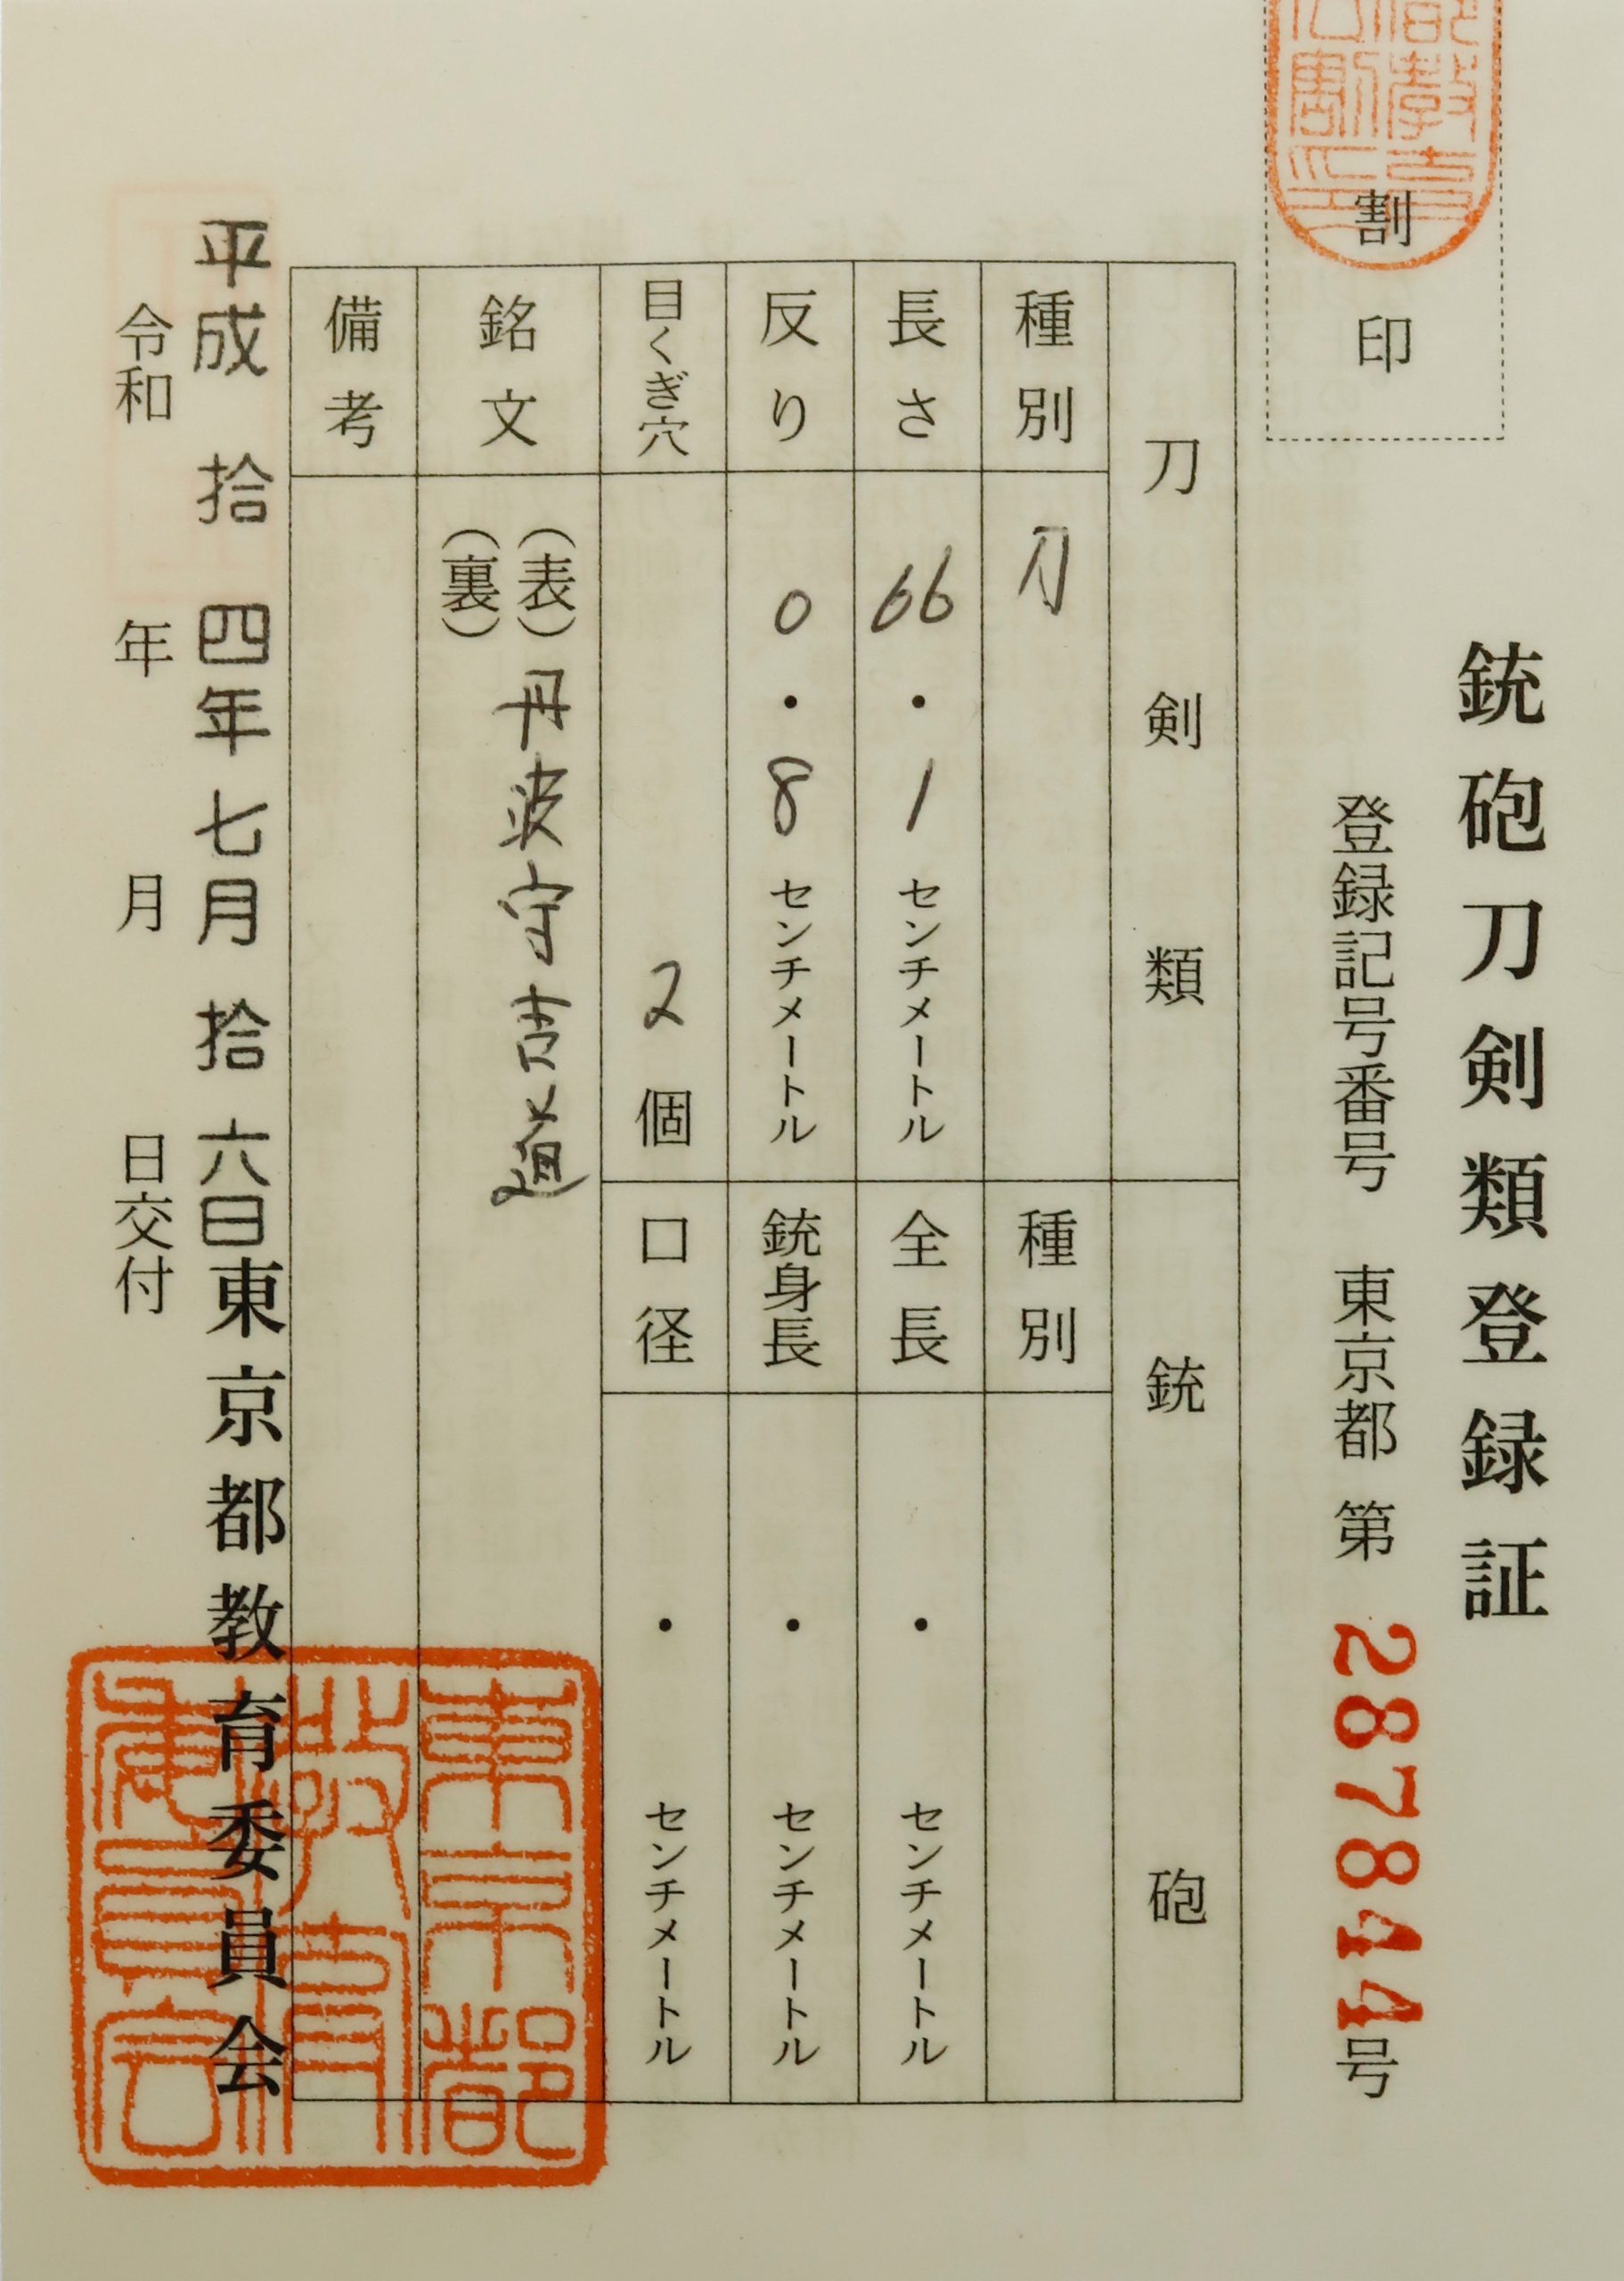 銃砲刀剣類登録証
登録記号番号 東京都 第 287844号
割印
刀剣類
銃砲
種別 刀
種別
長さ 66・1 センチメートル
全長 ・ センチメートル
反り 0・8 センチメートル
銃身長 ・ センチメートル
目くぎ穴 2個
口径 ・ センチメートル
銘文 (表) 丹波守吉道
(裏)
備考
平成拾四年七月拾六日 東京都教育委員会
令和 年 月 日交付
東京都
教育
委員会